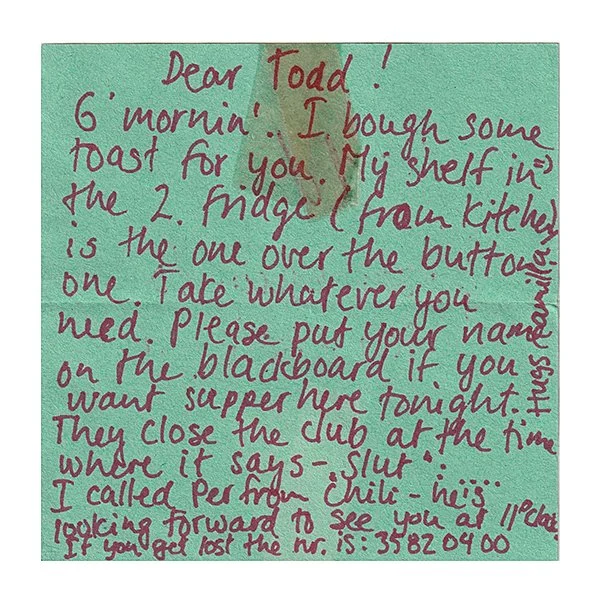 Dear Todd!
G'mornin'.. I bough some
toast for you. My shelf in =)
the 2. fridge (from kitchen)
is the one over the button
one. Take whatever you
need. Please put your name
on the blackboard if you
want supper here tonight.
They close the club at the time
where it says - slut :
I called Per from Chili - he's
looking forward to see you at 11 o'clock.
If you get lost the nr. is: 35820400
Hugs Kamilla